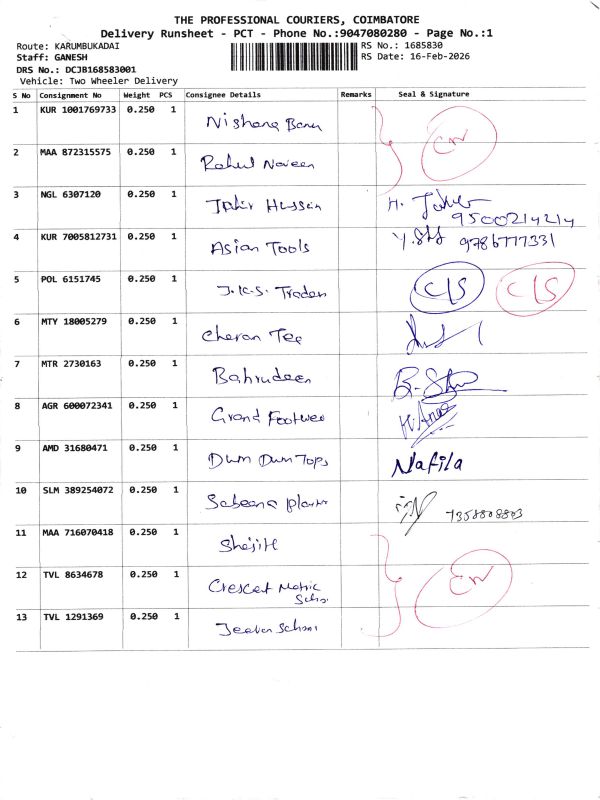 THE PROFESSIONAL COURIERS, COIMBATORE
Delivery Runsheet - PCT - Phone No.:9047080280 - Page No.:1
Route: KARUMBUKADAI RS No.: 1685830
Staff: GANESH RS Date: 16-Feb-2026
DRS No.: DCJB168583001
Vehicle: Two Wheeler Delivery
S No Consignment No Weight PCS Consignee Details Remarks Seal & Signature
1 KUR 1001769733 0.250 1 Nishana Banu
2 MAA 872315575 0.250 1 Rahul Naveen
3 NGL 6307120 0.250 1 Hussain H. 9500214214
4 KUR 7005812731 0.250 1 Asian Tools 9786777331
5 POL 6151745 0.250 1 J.K.S. Traders C/S C/S
6 MTY 18005279 0.250 1 Cheran Tee
7 MTR 2730163 0.250 1 Bahrudeen
8 AGR 600072341 0.250 1 Grand Footwee
9 AMD 31680471 0.250 1 Dum Dum Tops Nafila
10 SLM 389254072 0.250 1 Sabeena 7358808803
11 MAA 716070418 0.250 1
12 TVL 8634678 0.250 1 Crescent Matric
13 TVL 1291369 0.250 1 School